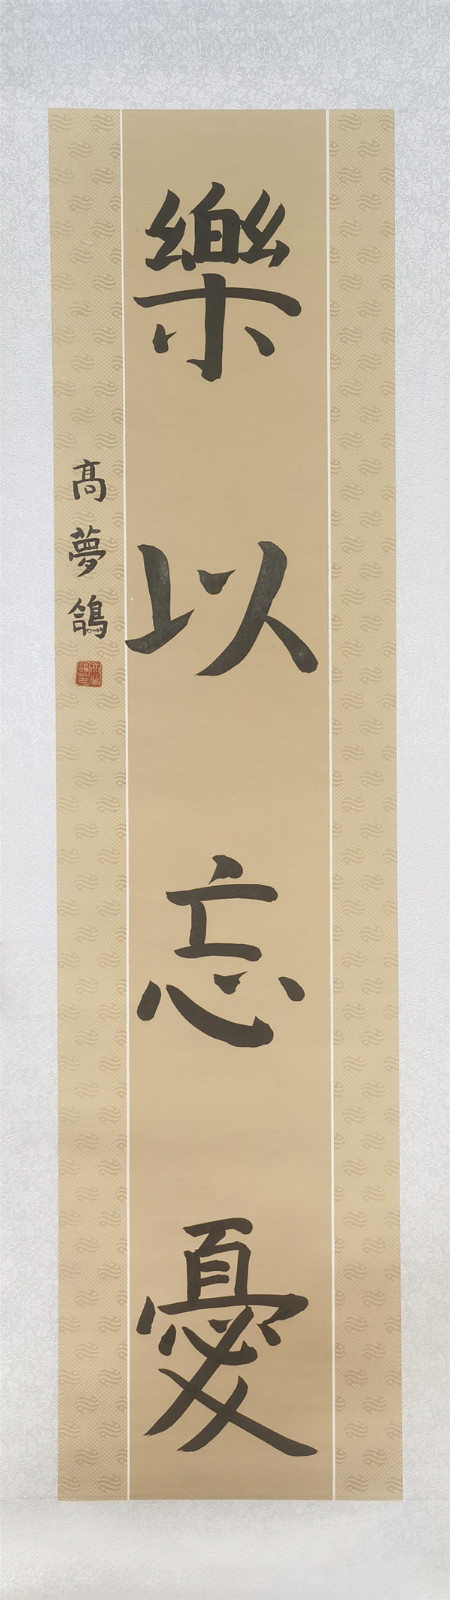 樂以忘憂
高夢鴿